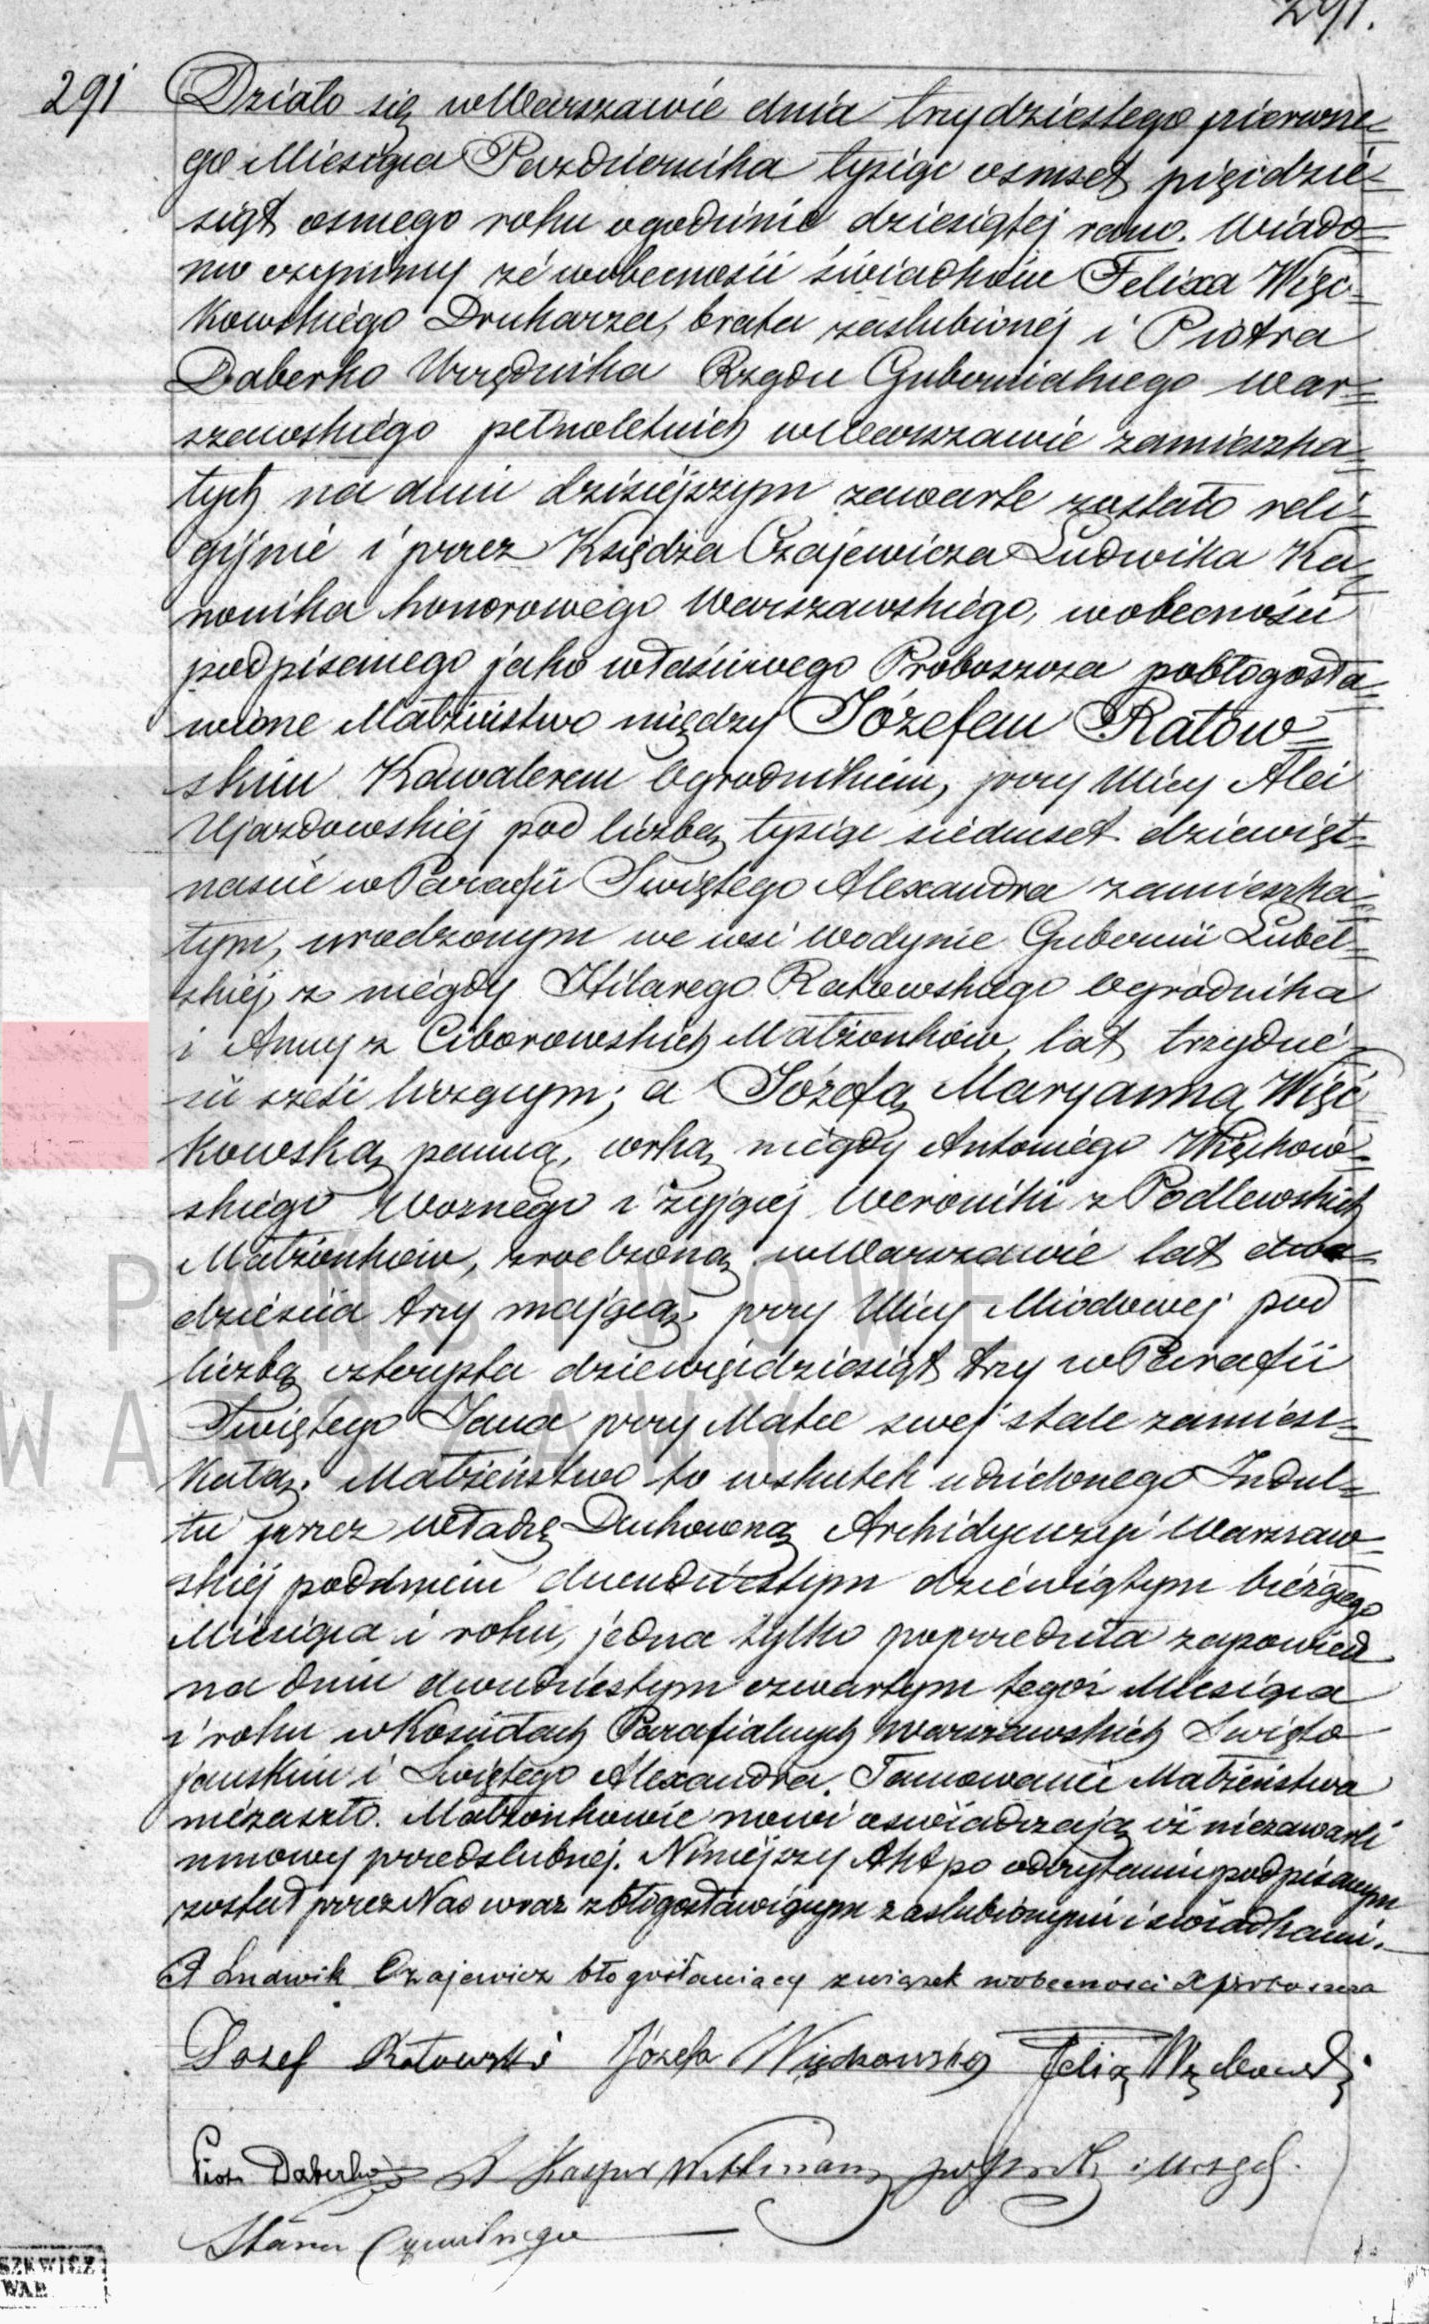 291.
291 Działo się w Warszawie dnia trzydziestego pierwsze=
go Miesiąca Pazdziernika tysiąc osmset pięćdzie=
siąt osmego roku o godzinie dziesiątej rano. Wiado=
mo czynimy że w obecności świadków Felixa Więc=
kowskiego Drukarza, brata zaslubionej i Piotra
Daberko Urzędnika Rządu Gubernialnego War=
szawskiego pełnoletnich w Warszawie zamieszka=
łych na dniu dzisiejszym zawarte zostało reli=
gijnie i przez Księdza Czajewicza Ludwika Ka=
nonika honorowego Warszawskiego, w obecności
podpisanego jako właściwego Proboszcza pobłogosła=
wione Małżeństwo między Józefem Ratow=
skim Kawalerem Ogrodnikiem, przy Ulicy Alei
Ujazdowskiej pod liczbą tysiąc siedmset dziewięt=
naście w Parafii Swiętego Alexandra zamieszka=
łym, urodzonym we wsi Wodynie Gubernii Lubel=
skiej, z niegdy Hilarego Ratowskiego Ogrodnika
i Anny z Ciborowskich Małżonków, lat trzydzie=
ści sześć liczącym; a Józefą Maryanną Więc
kowską panną, córką niegdy Antoniego Więckow=
skiego Woznego i żyjącej Weroniki z Podlewskich
Małżonków, zrodzoną w Warszawie lat dwa=
dzieścia trzy mającą, przy Ulicy Miodowej pod
liczbą czterysta dziewięćdziesiąt trzy w Parafii
Swiętego Jana przy Matce swej stale zamiesz=
kałą. Małżeństwo to wskutek udzielonego Indul=
tu przez Władzę Duchowną Archidyecezyi Warszaw=
skiej pod dniem dwudziestym dziewiątym bieżącego
Miesiąca i roku, jedna tylko poprzedziła zapowiedź
na dniu dwudziestym czwartym tegoż Miesiąca
i roku w Kościołach Parafialnych Warszawskich Swięto
jańskim i Swiętego Alexandra. Tamowanie Małżeństwa
niezaszło. Małżonkowie nowi oswiadczają iż niezawarli
umowy przedslubnej. Niniejszy Akt po odczytaniu podpisanym
został przez Nas wraz z błogosławiącym zaslubionymi i świadkami.
X Ludwik Czajewicz błogosławiący związek w obecnosci X proboszcza
Jozef Ratowski Józefa Więckowska Felix Węckowski
Piotr Daberko X Kasper Wittmann
Stanu Cywilnego
PAŃSTWOWE
WARSZAWY
SZEWICZ
WAR